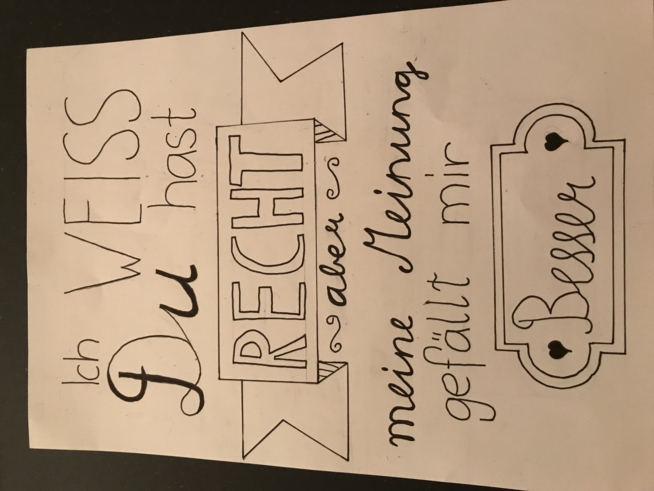 Ich
WEISS
Du hast
RECHT
aber
meine Meinung
gefällt mir
Besser